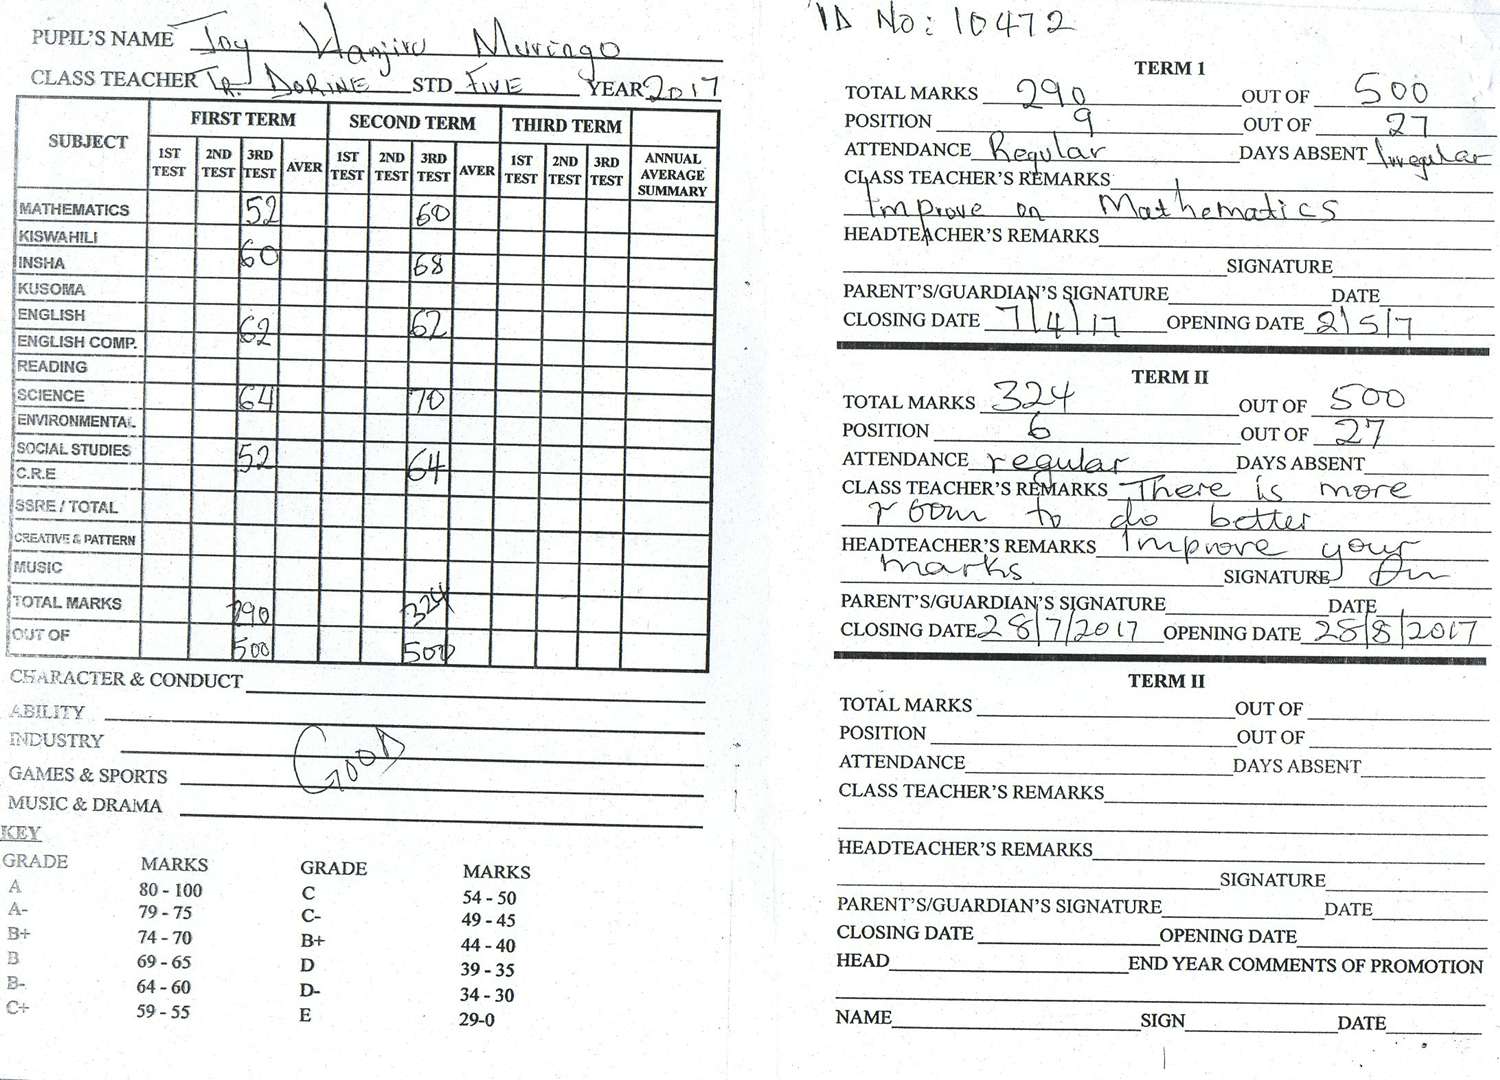 ID No: 10472
PUPIL'S NAME Joy Wanjiru Muringo
CLASS TEACHER TR. DORINE STD FIVE YEAR 2017
SUBJECT FIRST TERM SECOND TERM THIRD TERM
1ST TEST 2ND TEST 3RD TEST AVER 1ST TEST 2ND TEST 3RD TEST AVER 1ST TEST 2ND TEST 3RD TEST ANNUAL AVERAGE SUMMARY
MATHEMATICS 52 60
KISWAHILI
INSHA 60 68
KUSOMA
ENGLISH 62 62
ENGLISH COMP.
READING
SCIENCE 64 70
ENVIRONMENTAL
SOCIAL STUDIES 52 64
C.R.E
SSRE / TOTAL
CREATIVE & PATTERN
MUSIC
TOTAL MARKS 290 324
OUT OF 500 500
CHARACTER & CONDUCT
ABILITY
INDUSTRY
GOOD
GAMES & SPORTS
MUSIC & DRAMA
KEY
GRADE MARKS GRADE MARKS
A 80 - 100 C 54 - 50
A- 79 - 75 C- 49 - 45
B+ 74 - 70 B+ 44 - 40
B 69 - 65 D 39 - 35
B- 64 - 60 D- 34 - 30
C+ 59 - 55 E 29-0
TERM 1
TOTAL MARKS 290 OUT OF 500
POSITION 9 OUT OF 27
ATTENDANCE Regular DAYS ABSENT Irregular
CLASS TEACHER'S REMARKS
Improve on Mathematics
HEADTEACHER'S REMARKS
SIGNATURE
PARENT'S/GUARDIAN'S SIGNATURE DATE
CLOSING DATE 7/4/17 OPENING DATE 2/5/7
TERM II
TOTAL MARKS 324 OUT OF 500
POSITION 6 OUT OF 27
ATTENDANCE regular DAYS ABSENT
CLASS TEACHER'S REMARKS There is more
room to do better
HEADTEACHER'S REMARKS Improve your
marks SIGNATURE
PARENT'S/GUARDIAN'S SIGNATURE DATE
CLOSING DATE 28/7/2017 OPENING DATE 28/8/2017
TERM II
TOTAL MARKS OUT OF
POSITION OUT OF
ATTENDANCE DAYS ABSENT
CLASS TEACHER'S REMARKS
HEADTEACHER'S REMARKS
SIGNATURE
PARENT'S/GUARDIAN'S SIGNATURE DATE
CLOSING DATE OPENING DATE
HEAD END YEAR COMMENTS OF PROMOTION
NAME SIGN DATE